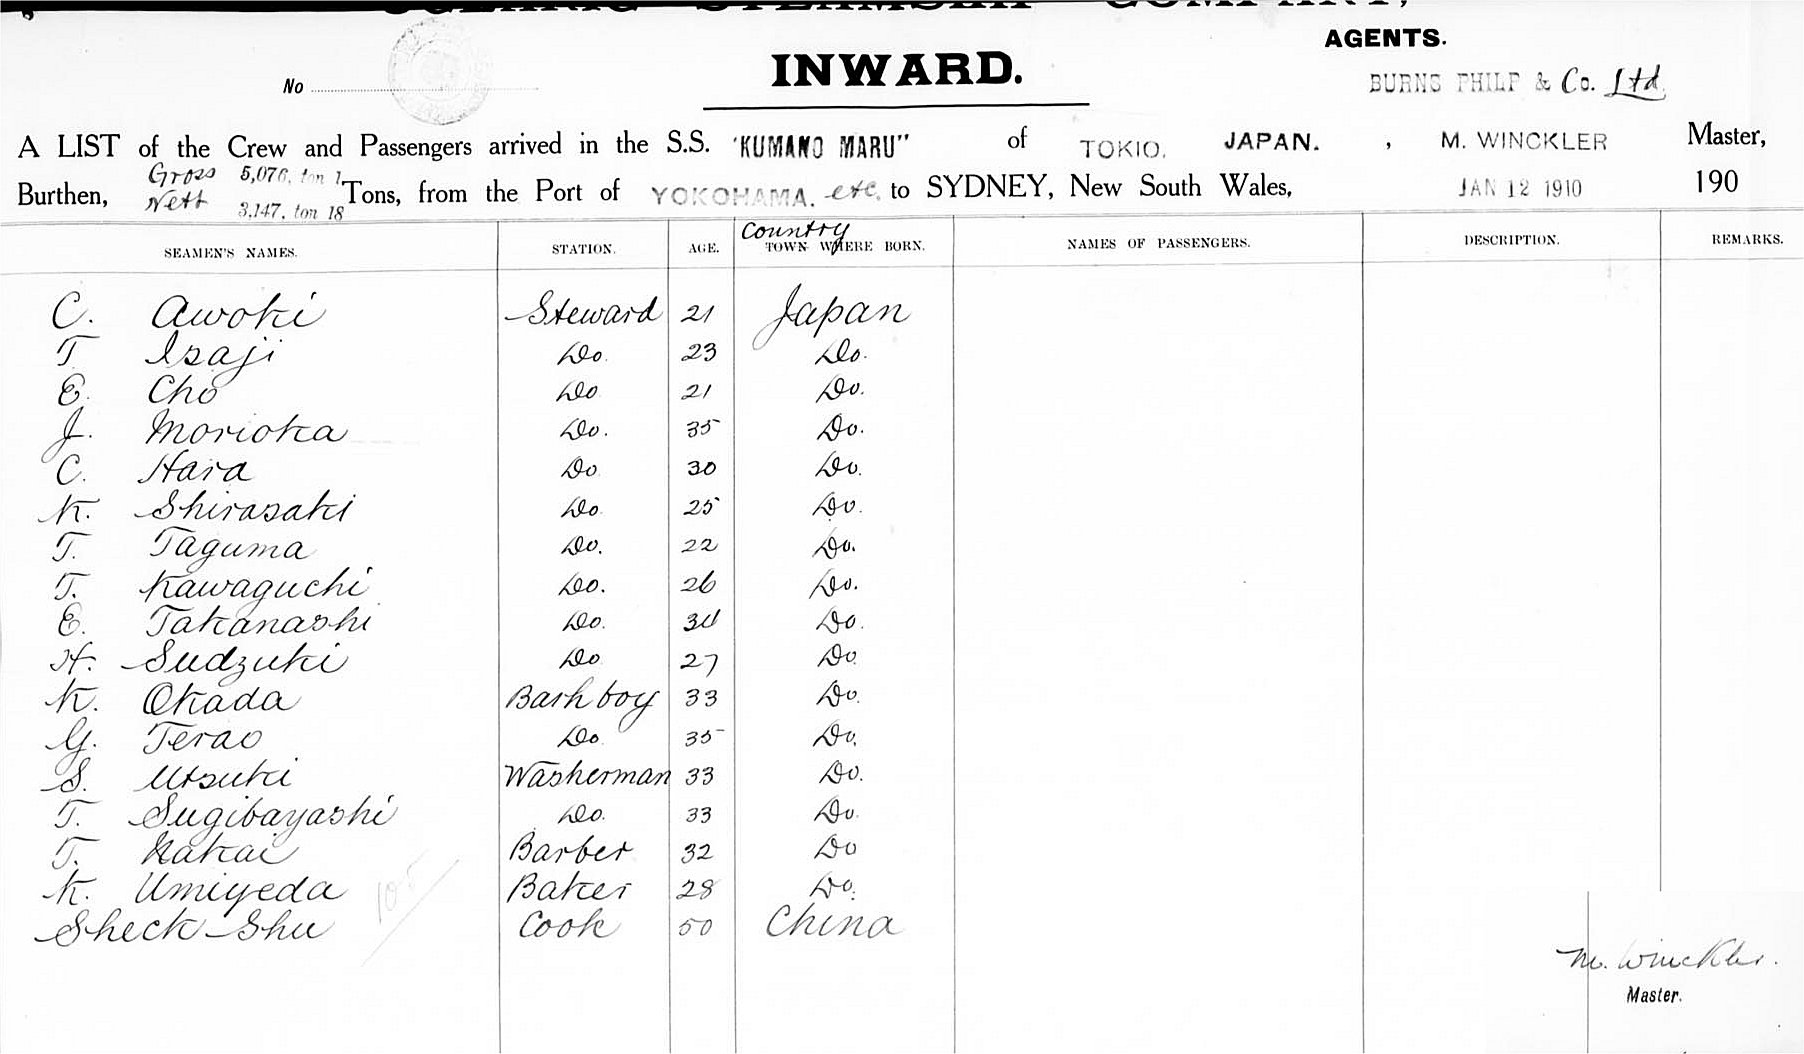 INWARD.
AGENTS.
No
BURNS PHILP & Co. Ltd.
A LIST of the Crew and Passengers arrived in the S.S. "KUMANO MARU" of TOKIO, JAPAN. , M. WINCKLER Master,
Burthen, Gross 5,076. ton 1 Nett 3,147. ton 18 Tons, from the Port of YOKOHAMA. etc. to SYDNEY, New South Wales, JAN 12 1910 190
SEAMEN'S NAMES. STATION. AGE. Country TOWN WHERE BORN. NAMES OF PASSENGERS. DESCRIPTION. REMARKS.
C. Awoki Steward 21 Japan
T. Isaji Do. 23 Do.
E. Cho Do 21 Do.
J. Morioka Do. 35 Do.
C. Hara Do 30 Do.
K. Shirasaki Do 25 Do.
T. Taguma Do. 22 Do.
T. Kawaguchi Do. 26 Do.
E. Takanashi Do. 34 Do.
H. Sudzuki Do 27 Do.
K. Okada Bathboy 33 Do.
G. Terao Do 35 Do.
S. Utsuki Washerman 33 Do.
T. Sugibayashi Do. 33 Do.
T. Nakai Barber 32 Do
K. Umiyeda Baker 28 Do.
Sheck Shu Cook 50 China
105
M. Winckler.
Master.